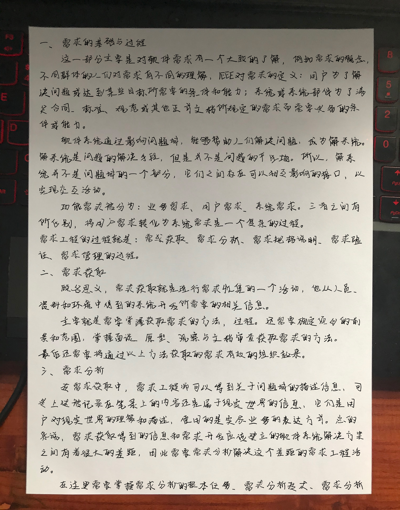 一、需求的基础与过程
这一部分主要是对软件需求有一个大致的了解，例如需求的概念，
不同群体的人们对需求有不同的理解，IEEE对需求的定义：用户为了解
决问题或达到某些目标所需要的条件和能力；系统或系统部件为了满
足合同、标准、规范或其他正式文档所规定的需求而需要具备的条
件或能力。
软件系统通过影响问题域，能够帮助人们解决问题，成为解系统。
解系统是问题的解决手段，但是并不是问题的一部分。所以，解系
统并不是问题域的一个部分，它们之间存在可以相互影响的接口，以
实现交互活动。
功能需求能分为：业务需求，用户需求、系统需求。三者之间有
所区别，将用户需求转化为系统需求是一个复杂的过程。
需求工程的过程就是：需求获取、需求分析、需求规格说明、需求验
证、需求管理的过程。
二、需求获取
顾名思义，需求获取就是进行需求收集的一个活动，他从人员、
资料和环境中得到的系统开发所需要的相关信息。
主要就是需要掌握获取需求的方法，过程。还需要确定项目的前
景和范围，掌握面谈、原型、观察与文档审查获取需求的方法。
最后还需要将通过以上方法获取的需求有效的组织起来。
三、需求分析
在需求获取中，需求工程师可以得到关于问题域的描述信息，可
是上述被记录在笔录上的内容还是属于现实世界的信息，它们是用
户对现实世界的理解和描述，使用的是实际业务的表达方式。总的
来说，需求获取得到的信息和需求开发应该建立的软件系统解决方案
之间有着很大的差距，因此需要需求分析解决这个差距的需求工程活
动。
在这里需要掌握需求分析的根本任务、需求分析定义、需求分析